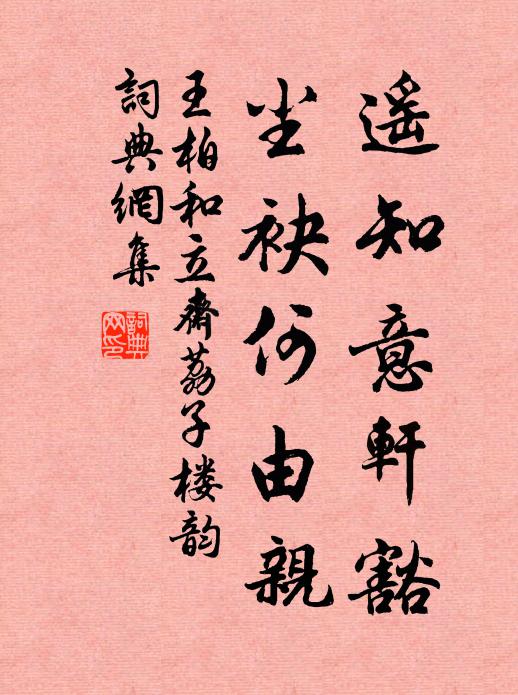 遥知意軒豁
尘袂何由親
王柏和立齋荔子楼韵
詞典網集
詞典网印